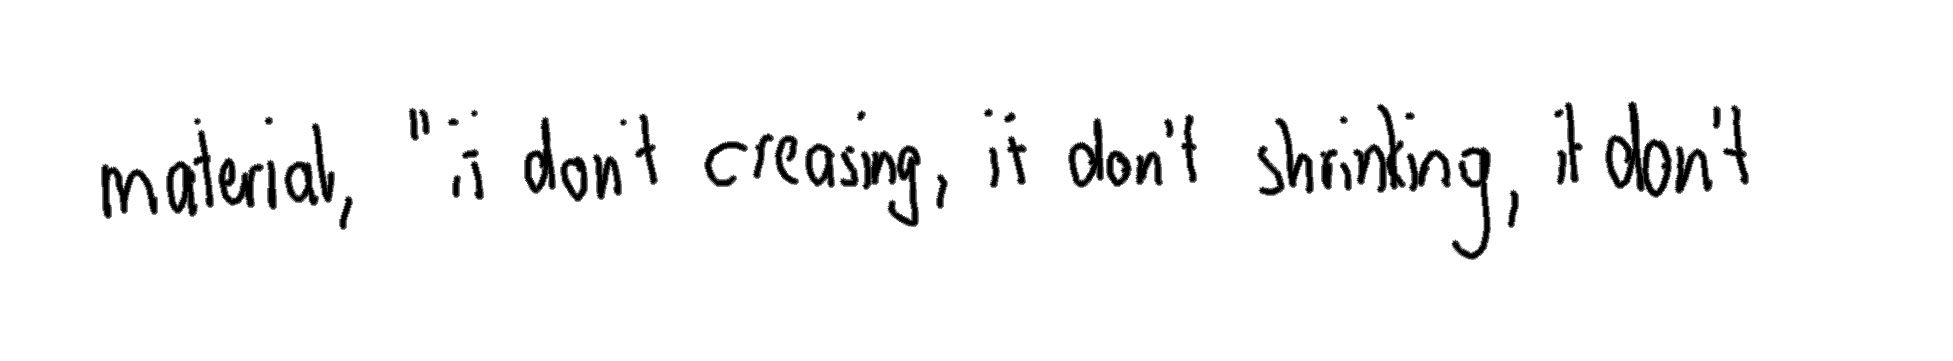 material, "it don't creasing, it don't shrinking, it don't